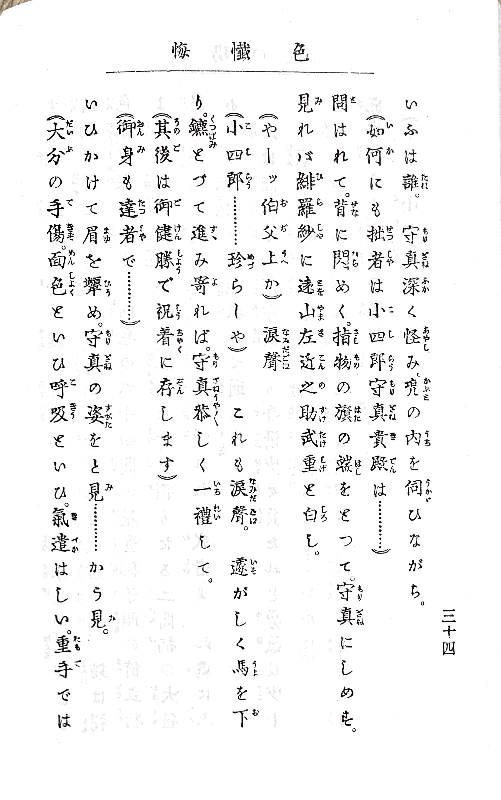 色懺悔
三十四
いふは誰。守真深く怪み、兜の内を伺ひながら。
(如何にも拙者は小四郎守真貴殿は………)
問はれて。背に閃めく。指物の旗の端をとつて。守真にしめす。
見れバ緋羅紗に遠山左近之助武重と白し。
(やーッ伯父上か)涙聲
(小四郎………珍らしや)これも涙聲。遽がしく馬を下
り。轡とつて進み寄れば。守真恭しく一禮して。
(其後は御健勝で祝着に存します)
(御身も達者で………)
いひかけて眉を顰め。守真の姿をと見………かう見。
(大分の手傷。面色といひ呼吸といひ。氣遣はしい。重手では